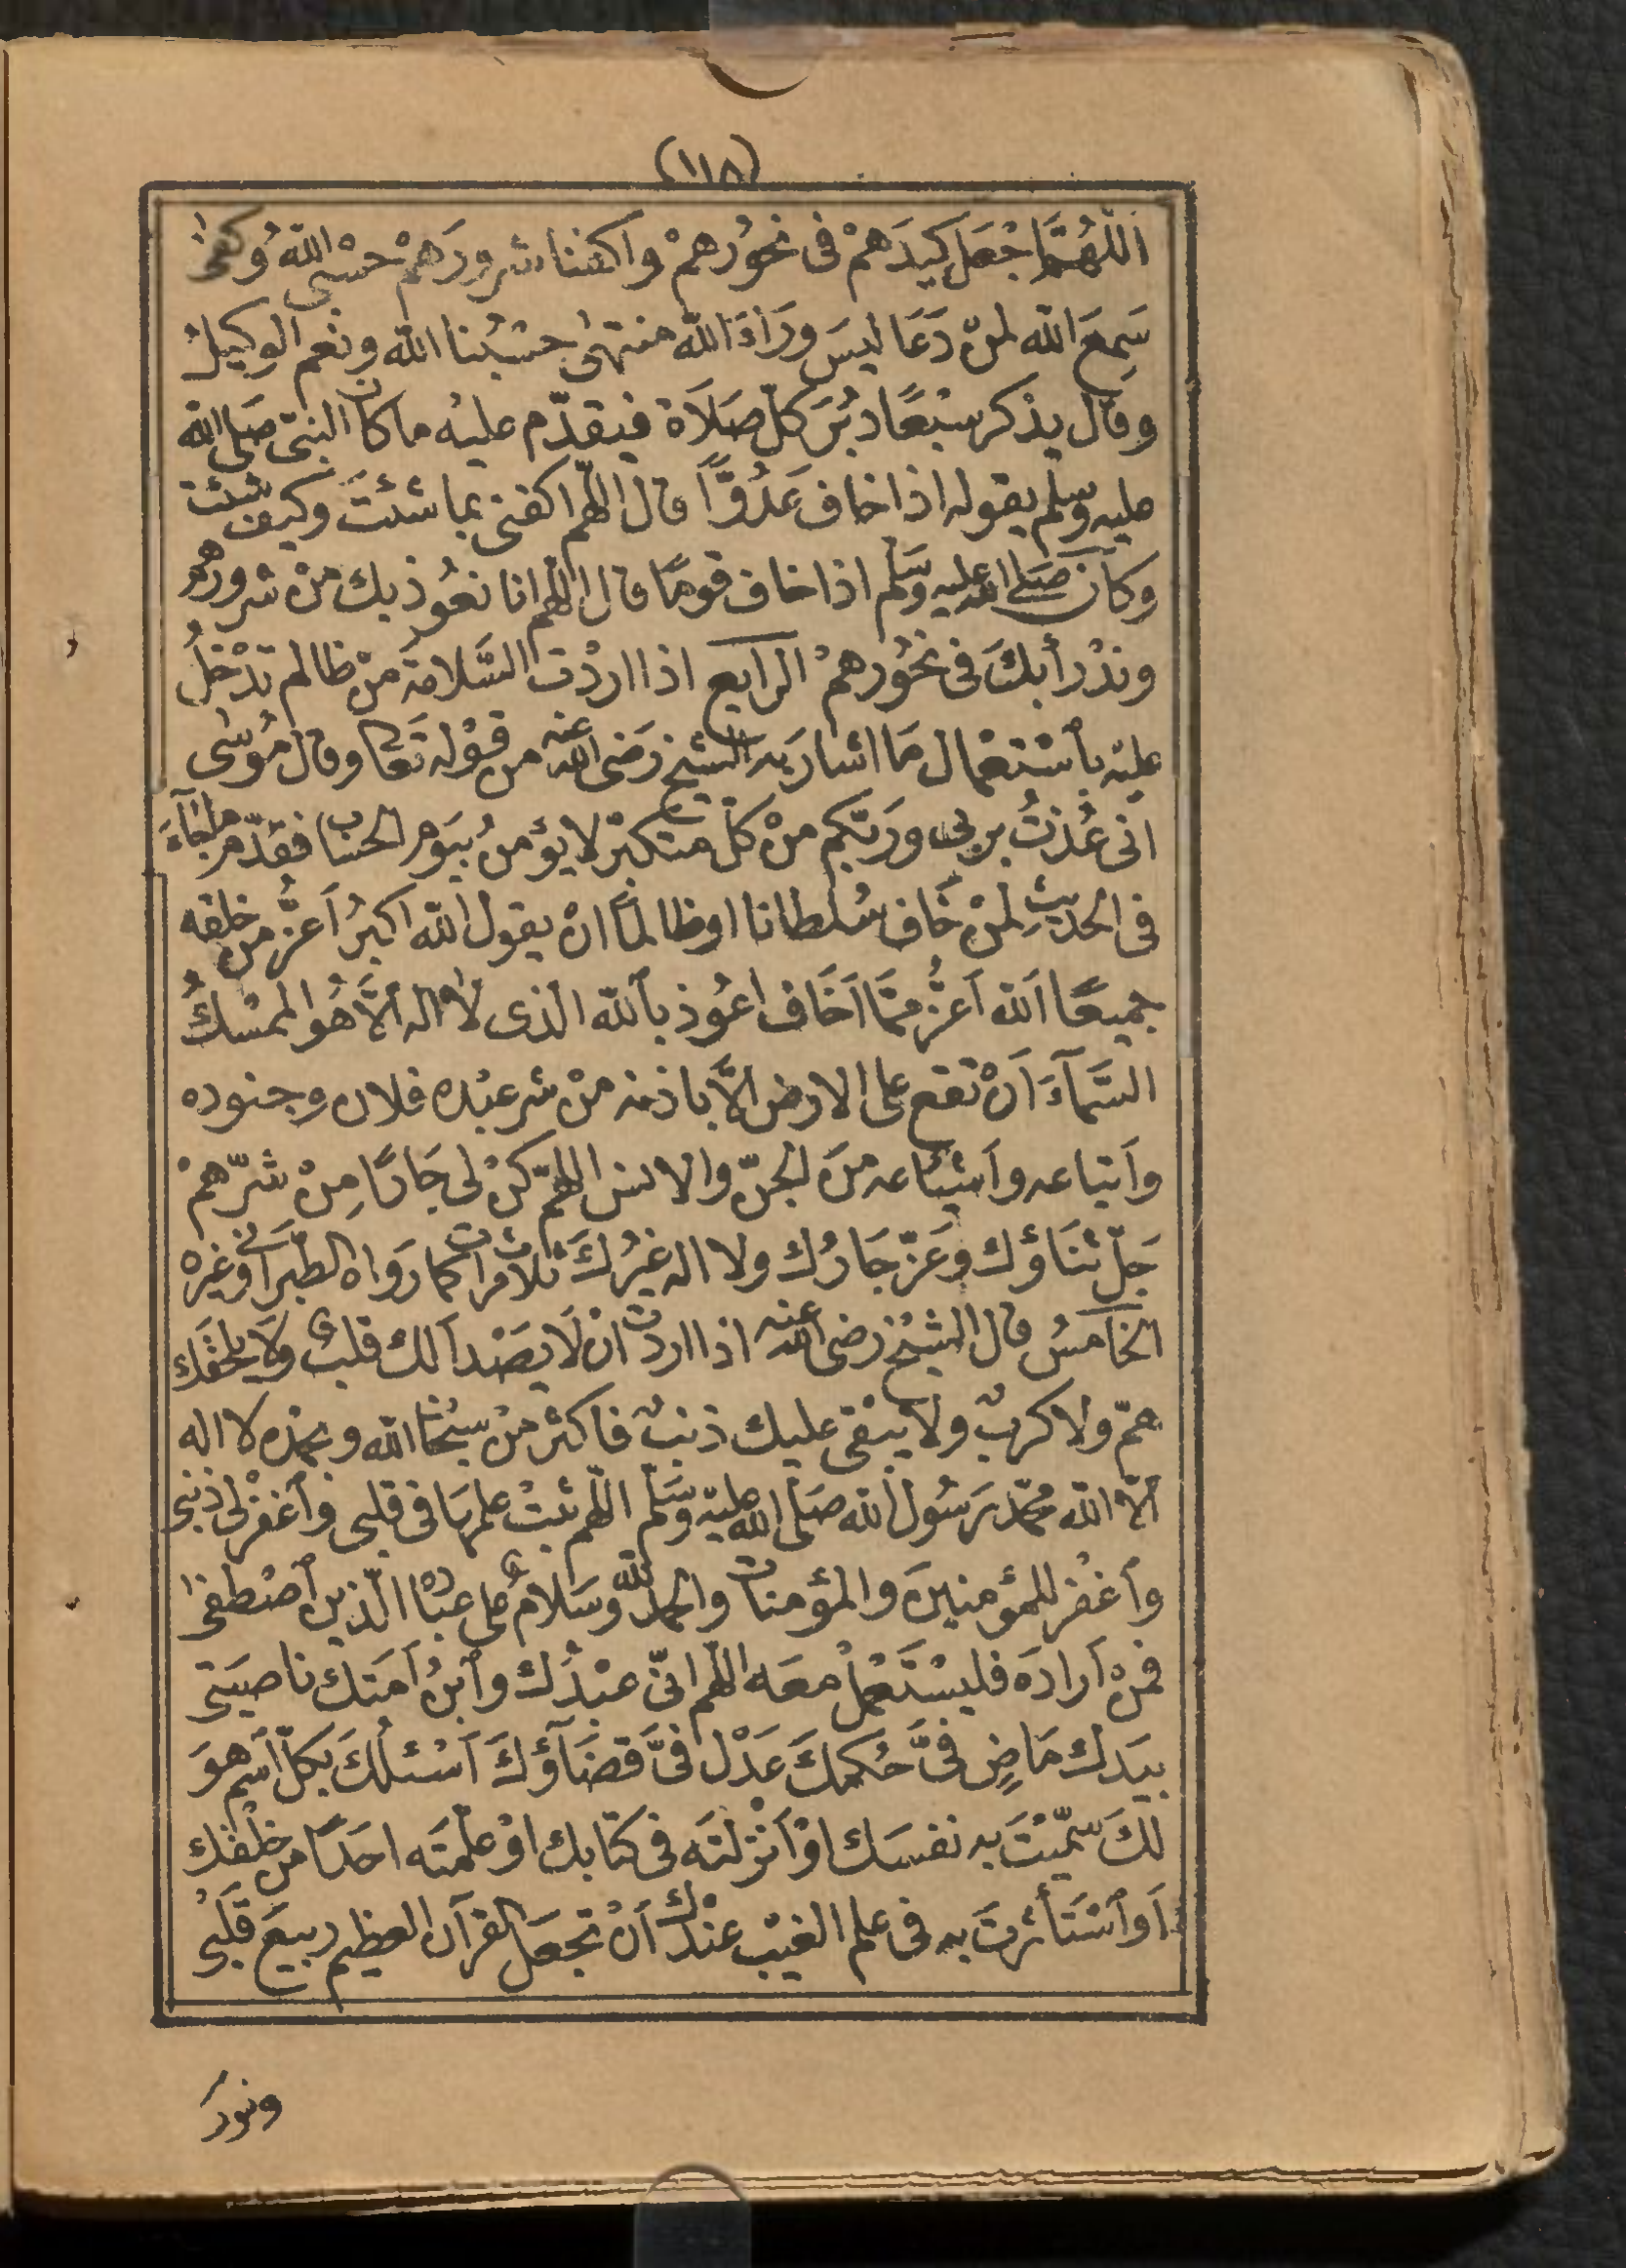 (١١٨)
اَللّٰهُمَّ اجْعَل كيدَهمْ فى نحوُرهمْ واكفنا شرورَهمْ حسْبى اللهُ وكفىٰ
سَمِعَ الله لمنْ دَعَا ليسَ ورَاءَ الله منتهىٰ حسْبُنا الله ونعم الوكيلُ
وقال يذكر سبْعًا دبُرَ كلّ صَلَاة فيقدّم عليْه ما كان النبىّ صَلى الله
عليه وسلم يقوله اذا خاف عَدُوًّا قال اللهمّ اكفنى بما شئتَ وكيف شئت
وكان صَلى الله عليه وسَلم اذا خاف قومًا قال اللهم انا نعُوذ بك منْ شرورهم
وندْرأ بكَ فى نحُورهمْ الرابع اذا اردْت السَّلامةَ منْ ظالم تدْخلُ
عليْه بٱسْتعْمال مَا اشار به الشيخ رَضى الله عنه من قوْله تعَالى وقال مُوسٰى
انى عُذتُ بربى ورَبّكم منْ كلّ متكبرْ لا يؤمنُ بيَوم الحسَاب فقدّم ما جَآءَ
فى الحديثِ لمنْ خَاف سُلطانا او ظالماً انْ يقول الله اكبرُ اَعزُّ من خلقه
جميعًا اَلله اَعزُّ ممَّا اَخَاف اعُوذ بٱلله الذى لا اله اِلَّا هُو الممْسكُ
السَّمآءَ اَنْ تقع على الارض الَّا باذنه منْ شر عبْده فلان وجنوده
وَاَتباعه وَاَشيَاعه منَ الجنّ والانس اللهمّ كنْ لى جَارًا مِنْ شرّهمْ
جَلّ ثنَاؤك وعَزّ جَارُك ولا اله غيْرُكَ ثلاث مرات كما روَاه الطّبرَانى وغيره
الخَامسُ قال الشيْخ رضى الله عنه اذا اردت انْ لَا يصَْدأ لك قلبٌ ولا يلحقَك
همّ ولا كربٌ ولا يبْقى عليك ذنبٌ فاكثر منْ سبْحَان الله وبحمْده لا اله
اِلَّا الله محمّد رَسُول الله صَلى الله عليْه وسَلّم اللّهم ثبتْ علمهَا فى قلبى وٱغفرْ لى ذنبى
وٱغفْر للمؤمنينَ والمؤمنات والحمْد لله وسَلامٌ على عبَاده الّذين ٱصْطفىٰ
فمنْ اَرادَه فليسْتَعْملْ معَه اللهم انّى عبْدُك وٱبنُ اَمَتك ناصيَتى
بيَدك مَاضٍ فىَّ حُكمكَ عَدْل فىَّ قضَآؤكَ اَسْئلكَ بكلّ ٱسْم هوَ
لكَ سمّيْتَ به نفسَك اوْ اَنْزلتَه فى كتابك اوْ علمّتَه احَدًا من خلْقك
اَو ٱسْتَأثرتَ به فى علم الغيْب عنْدك اَنْ تجعَل القرآن العظيم ربيعَ قلبْى
ونورَ